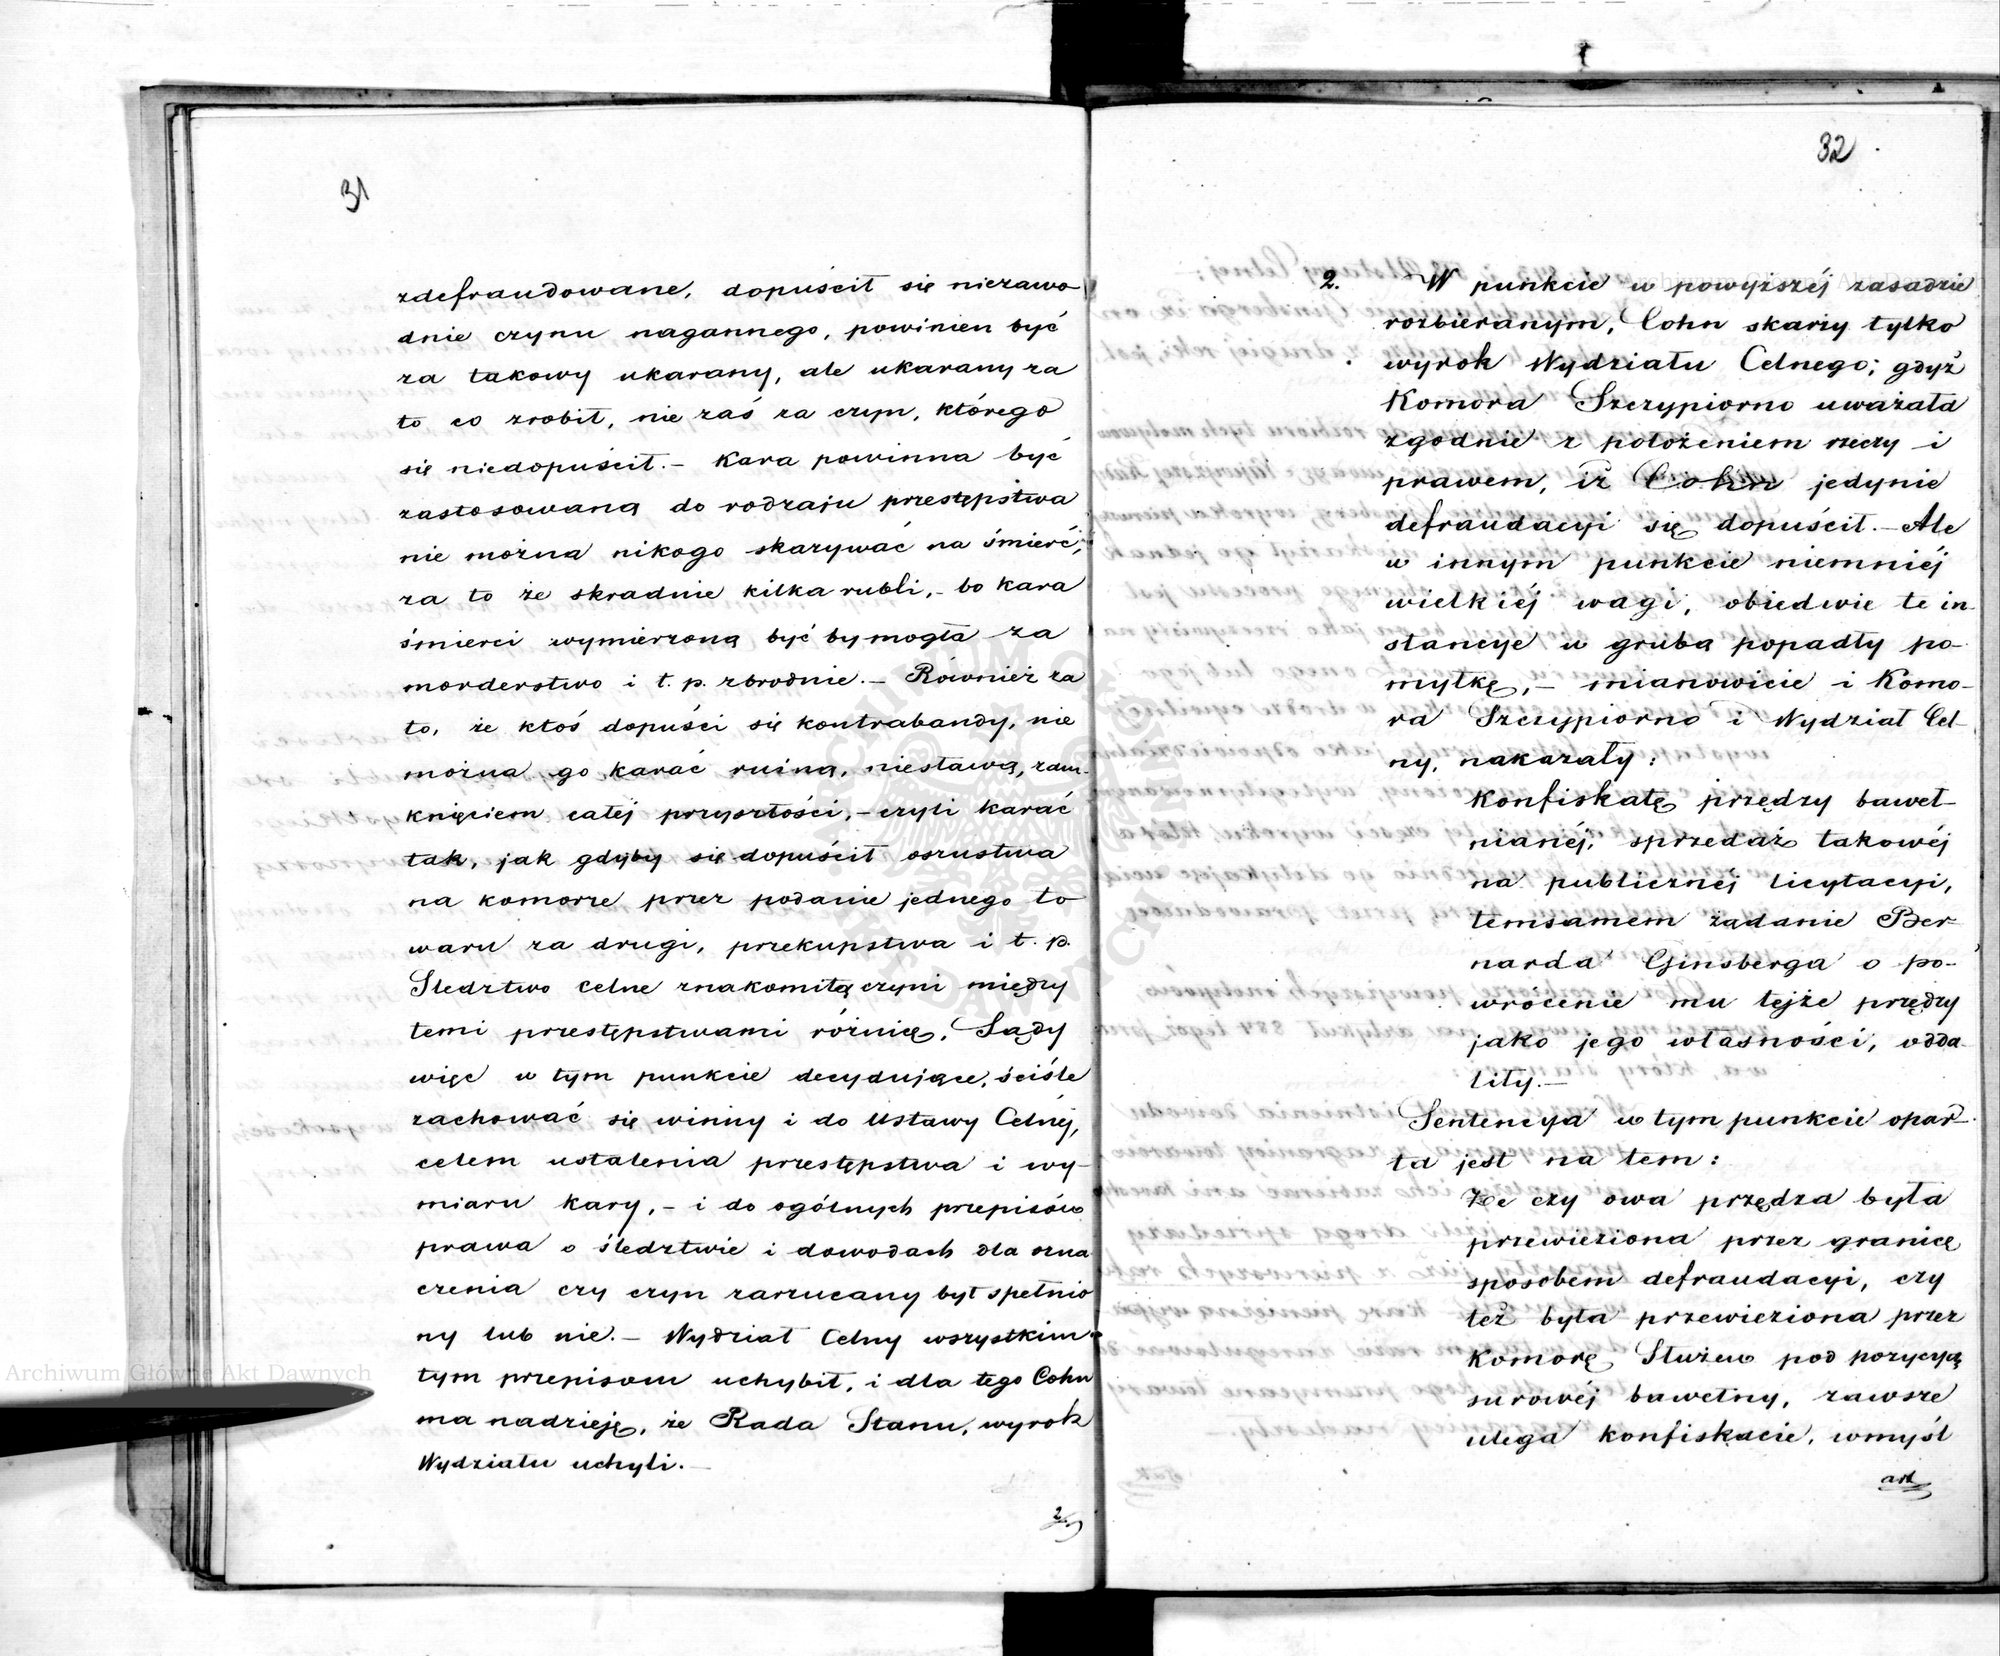 31
zdefraudowane, dopuścił się niezawo
dnie czynu nagannego, powinien być
za takowy ukarany, ale ukarany za
to co zrobił, nie zaś za czyn, którego
się niedopuścił. – Kara powinna być
zastosowaną do rodzaju przestępstwa
nie można nikogo skazywać na śmierć,
za to że skradnie kilka rubli, – bo kara
śmierci wymierzoną być by mogła za
morderstwo i t. p. zbrodnie. – Również za
to, że ktoś dopuści się kontrabandy, nie
można go karać ruiną, niesławą, zam-
knięciem całej przyszłości, – czyli karać
tak, jak gdyby się dopuścił oszustwa
na komorze przez podanie jednego to
waru za drugi, przekupstwa i t. p.
Śledztwo celne znakomitą czyni między
temi przestępstwami różnicę. Sądy
więc w tym punkcie decydujące, ściśle
zachować się winny i do Ustawy Celnéj,
celem ustalenia przestępstwa i wy-
miaru kary, – i do ogólnych przepisów
prawa o śledztwie i dowodach dla ozna
czenia czy czyn zarzucany był spełnio
ny lub nie. – Wydział Celny wszystkim
tym przepisom uchybił, i dla tego Cohn
ma nadzieję, że Rada Stanu, wyrok
Wydziału uchyli. –
2.
32
2. W punkcie w powyższéj zasadzie
rozbieranym, Cohn skarży tylko
wyrok Wydziału Celnego; gdyż
Komora Szczypiorno uważała
zgodnie z położeniem rzeczy i
prawem, iż Cohn jedynie
defraudacyi się dopuścił. – Ale
w innym punkcie niemniéj
wielkiéj wagi, obiedwie te in-
stancye w grubą popadły po-
myłkę, – mianowicie i Komo-
ra Szczypiorno i Wydział Cel-
ny, nakazały:
Konfiskatę przędzy baweł-
nianéj, sprzedaż takowéj
na publicznéj licytacyi,
temsamem żądanie Ber-
narda Ginsberga o po-
wrócenie mu tejże przędzy
jako jego własności, odda-
liły. –
Sentencya w tym punkcie opar-
ta jest na tem:
Że czy owa przędza była
przewieziona przez granicę
sposobem defraudacyi, czy
też była przewieziona przez
Komorę Służew pod pozycyą
surowéj bawełny, zawsze
ulega konfiskacie, wmyśl
art
Archiwum Główne Akt Dawnych